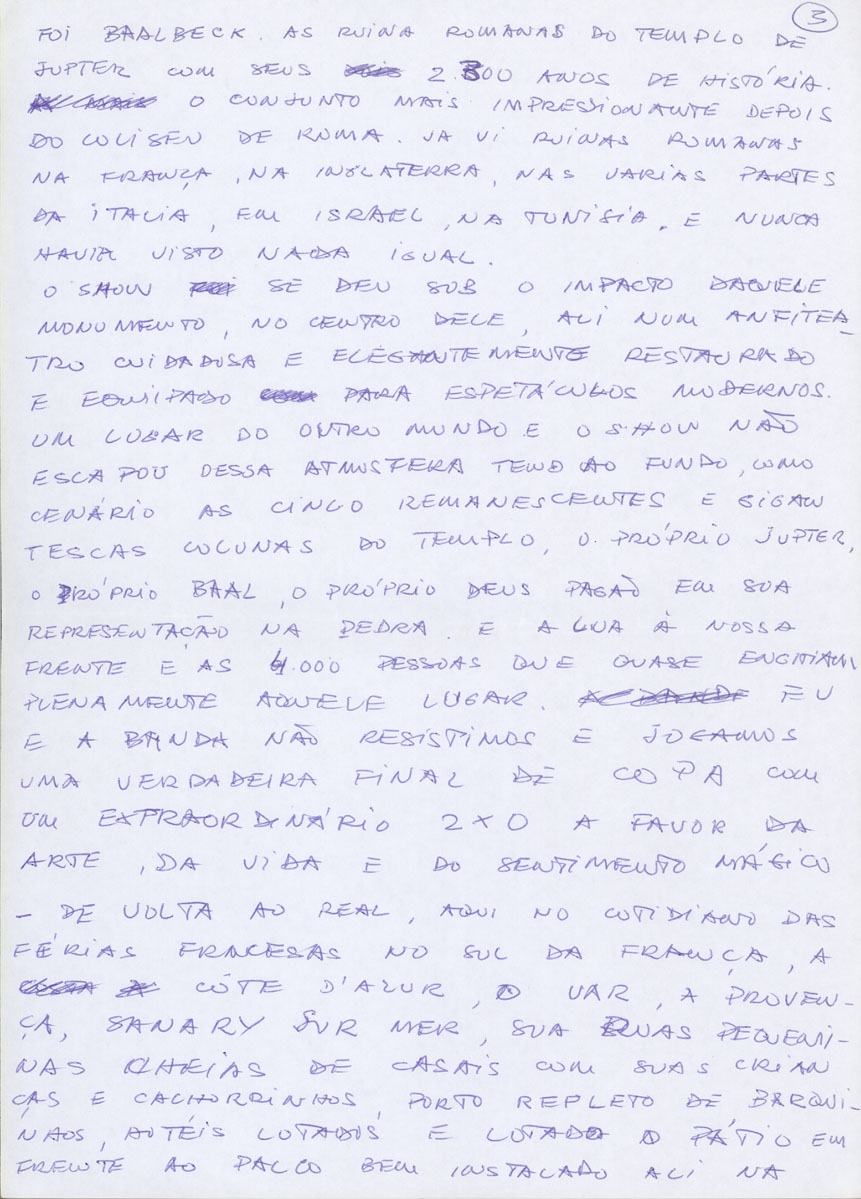 3
FOI BAALBECK. AS RUINA ROMANAS DO TEMPLO DE
JUPTER COM SEUS 2.300 ANOS DE HISTÓRIA.
O CONJUNTO MAIS IMPRESSIONANTE DEPOIS
DO COLISEU DE ROMA. JA VI RUINAS ROMANAS
NA FRANÇA, NA INGLATERRA, NAS VARIAS PARTES
DA ITALIA, EM ISRAEL, NA TUNISIA. E NUNCA
HAVIA VISTO NADA IGUAL.
O SHOW SE DEU SOB O IMPACTO DAQUELE
MONUMENTO, NO CENTRO DELE, ALI NUM ANFITEA-
TRO CUIDADOSA E ELEGANTEMENTE RESTAURADO
E EQUIPADO PARA ESPETÁCULOS MODERNOS.
UM LUGAR DO OUTRO MUNDO E O SHOW NÃO
ESCAPOU DESSA ATMOSFERA TENDO AO FUNDO, COMO
CENÁRIO AS CINCO REMANESCENTES E GIGAN
TESCAS COLUNAS DO TEMPLO, O PRÓPRIO JUPTER,
O PRÓPRIO BAAL, O PRÓPRIO DEUS PAGÃO EM SUA
REPRESENTAÇÃO NA PEDRA. E A LUA À NOSSA
FRENTE E AS 4.000 PESSOAS QUE QUASE ENCHIAM
PLENAMENTE AQUELE LUGAR. EU
E A BANDA NÃO RESISTIMOS E JOGAMOS
UMA VERDADEIRA FINAL DE COPA COM
UM EXTRAORDINÁRIO 2X0 A FAVOR DA
ARTE, DA VIDA E DO SENTIMENTO MÁGICO
- DE VOLTA AO REAL, AQUI NO COTIDIANO DAS
FÉRIAS FRANCESAS NO SUL DA FRANÇA, A
CÔTE D'AZUR, O VAR, A PROVEN-
ÇA, SANARY SUR MER, SUA RUAS PEQUENI-
NAS CHEIAS DE CASAIS COM SUAS CRIAN
ÇAS E CACHORRINHOS, PORTO REPLETO DE BARQUI-
NHOS, HOTÉIS LOTADOS E LOTADO O PÁTIO EM
FRENTE AO PALCO BEM INSTALADO ALI NA